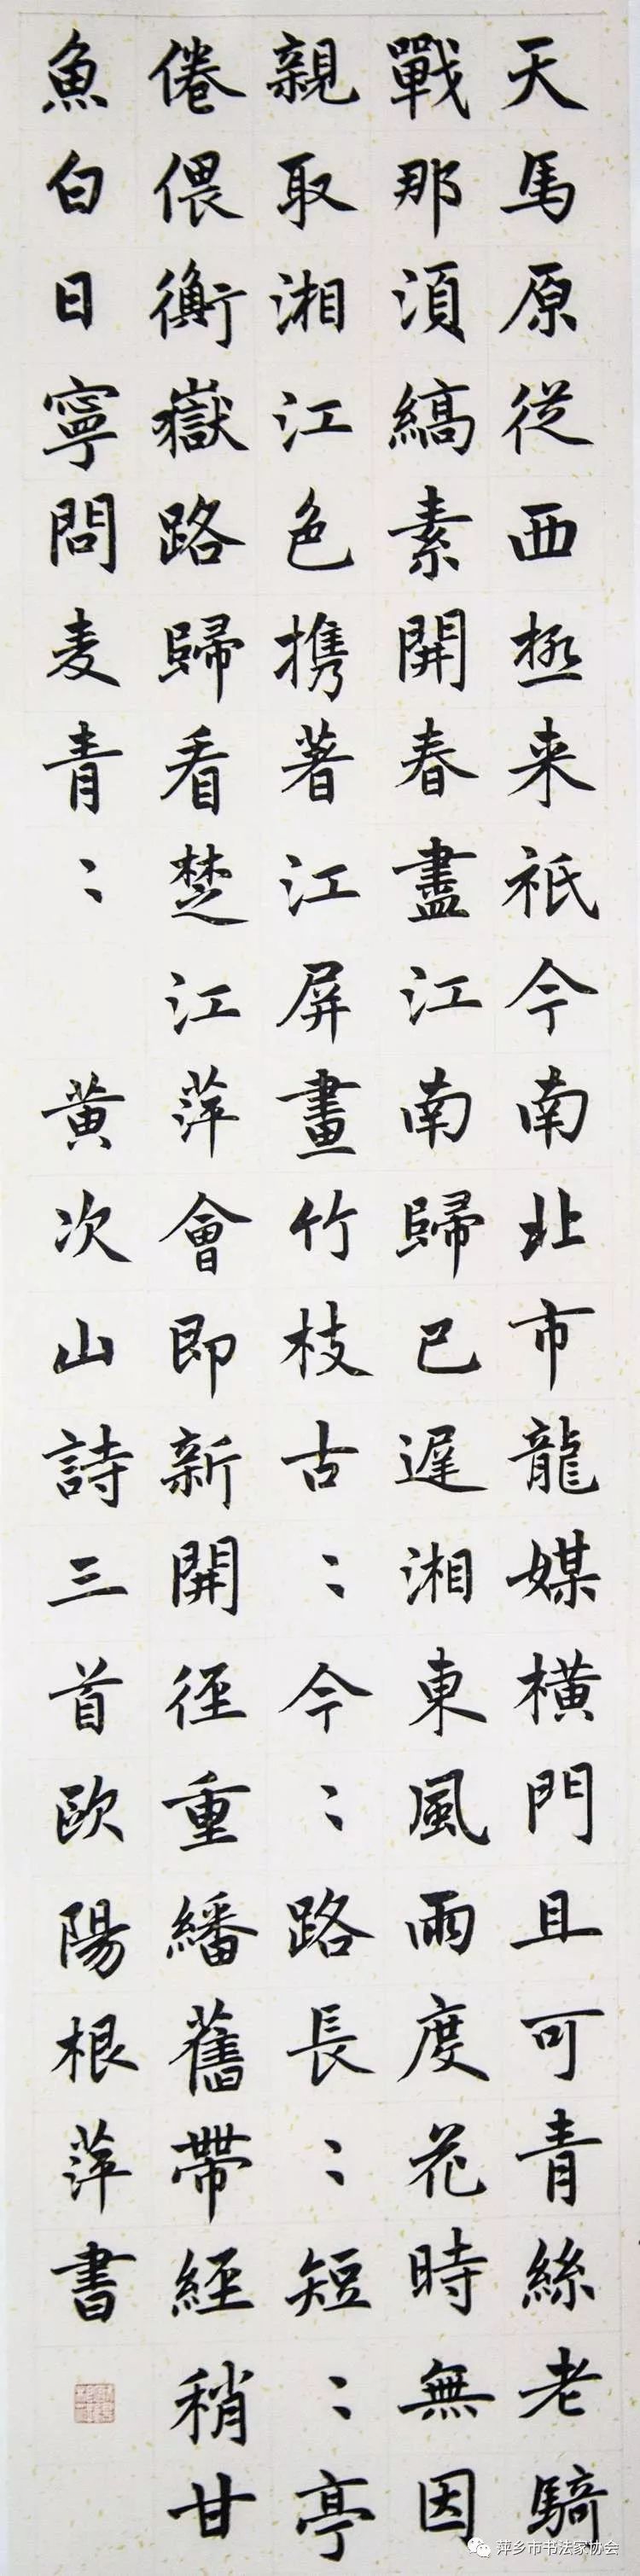 天馬原從西極来祇今南北市龍媒横門且可青絲老騎
戰那須縞素開春盡江南歸已遲湘東風雨度花時無因
親取湘江色携著江屏畫竹枝古〻今〻路長〻短〻亭
倦偎衡嶽路歸看楚江萍會即新開径重繙舊帶經稍甘
魚白日寧問麦青〻 黄次山詩三首欧陽根萍書
萍乡市书法家协会